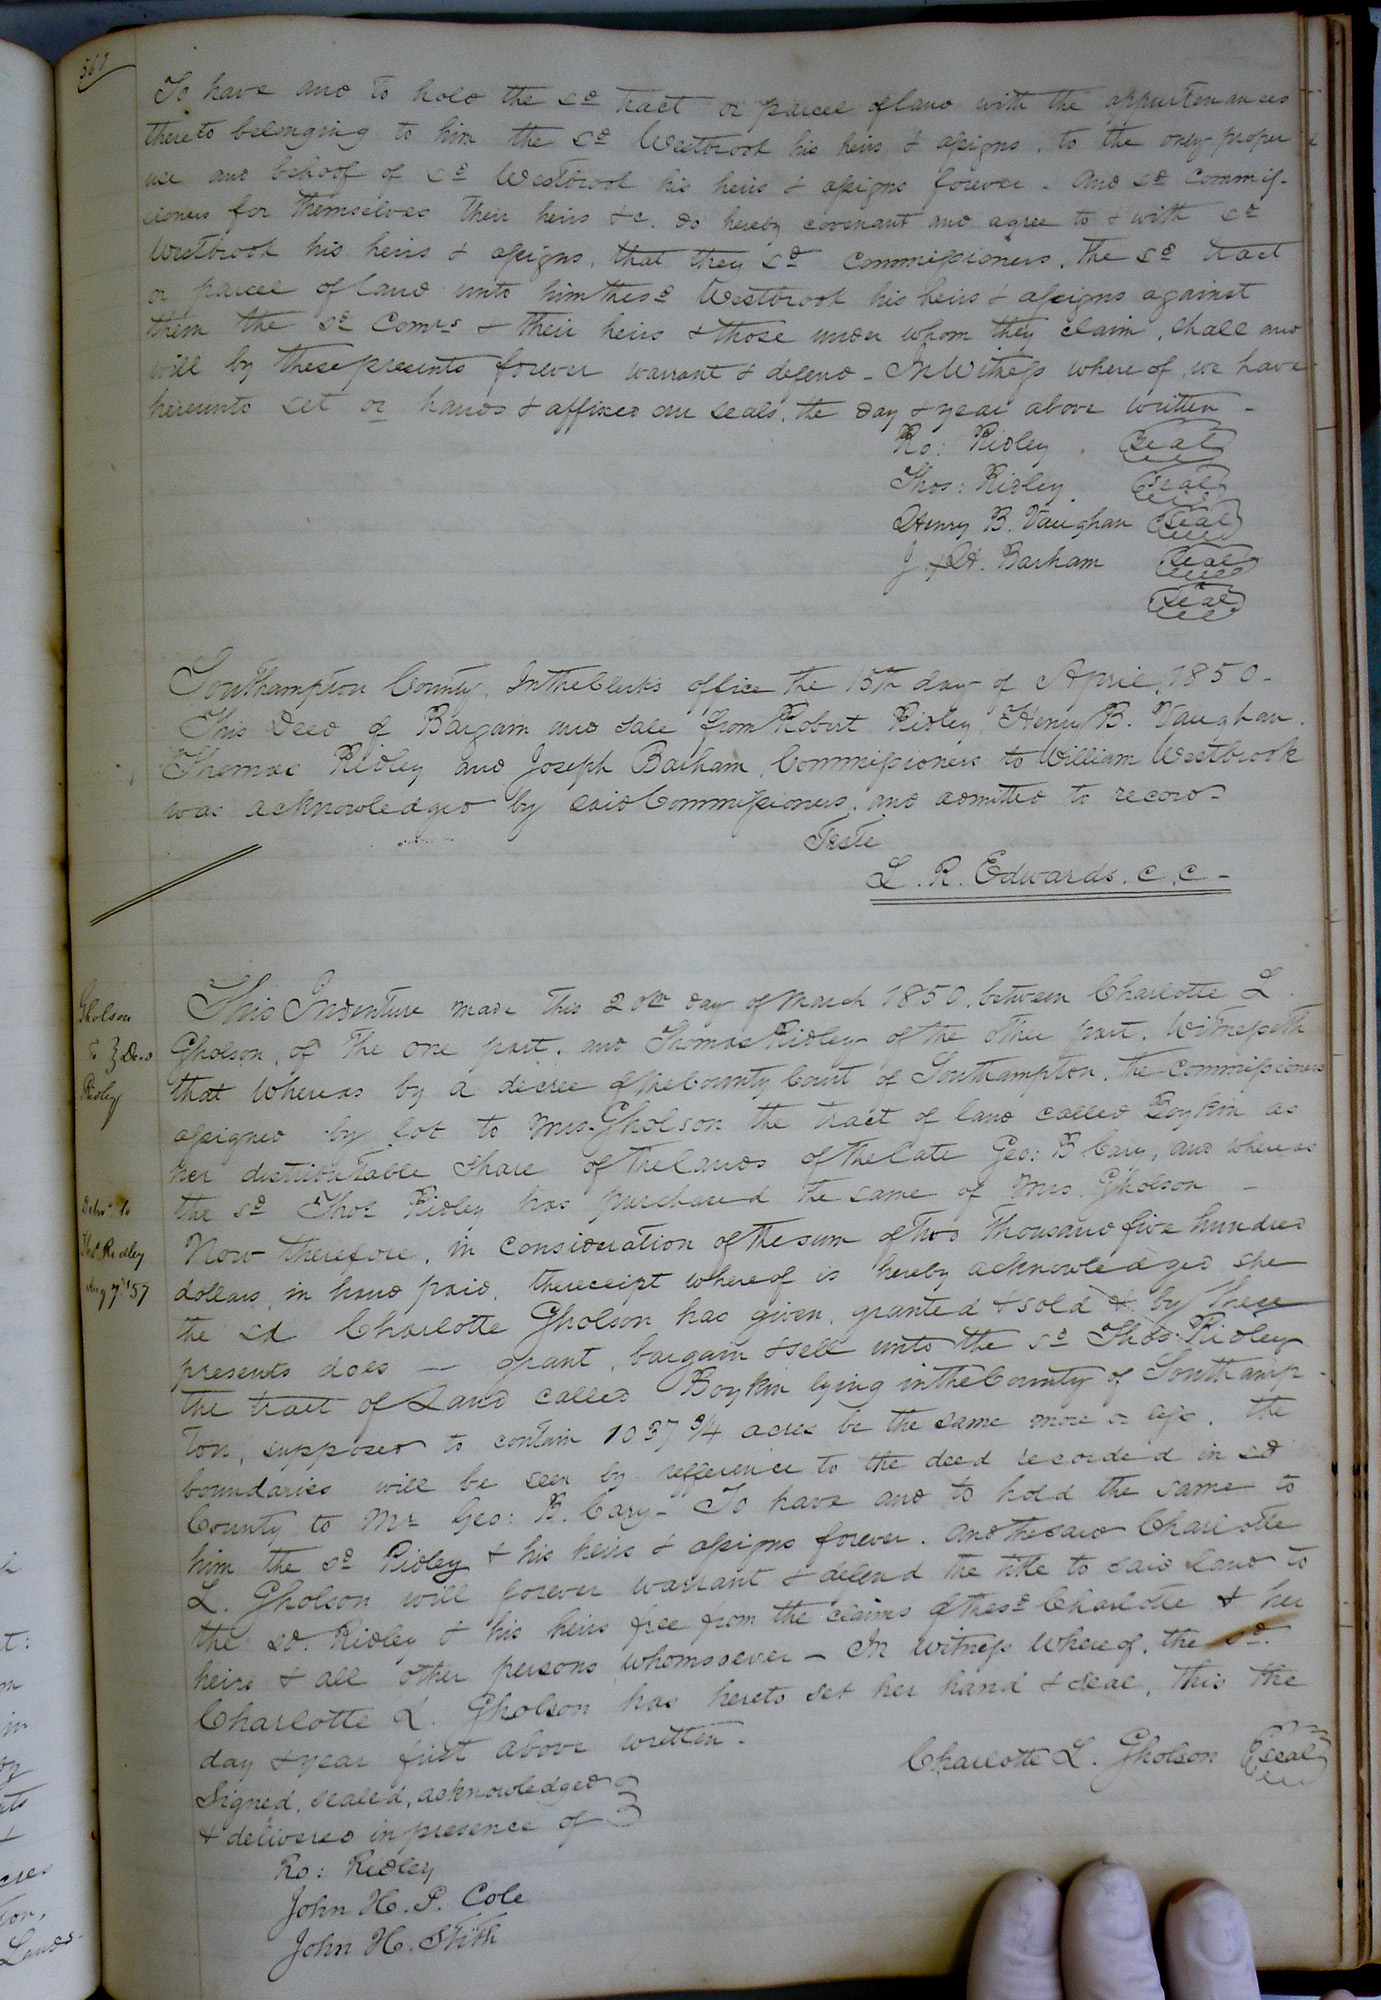 567
To have and to hold the sd tract or parcel of land with the appurtenances
thereto belonging to him the sd Westbrook his heirs & assigns, to the only proper
use and behoof of sd Westbrook his heirs & assigns forever. And sd Commis-
sioners for themselves their heirs &c. do hereby covenant and agree to & with sd
Westbrook his heirs & assigns, that they sd Commissioners, the sd tract
or parcel of land unto him the sd Westbrook his heirs & assigns against
them the sd Comrs & their heirs & those under whom they claim, shall and
will by these presents forever warrant & defend - In Witness where of we have
hereunto set or hands & affixed our seals, the day & year above written -
Ro: Ridley. Seal
Thos: Ridley. Seal
Henry B. Vaughan Seal
J. H. Barham Seal
Seal
Southampton County, In the Clerk's office the 15th day of April, 1850 -
This Deed of Bargain and sale from Robert Ridley, Henry B. Vaughan,
Thomas Ridley and Joseph Barham, Commissioners to William Westbrook
was acknowledged by said Commissioners, and admitted to record -
Teste
L. R. Edwards. C. C -
Gholson
to } Deed
Ridley
This Indenture made this 20th day of March 1850, between Charlotte L.
Gholson, of the one part, and Thomas Ridley of the other part, Witnesseth
that whereas by a decree of the County Court of Southampton, the commissioners
assigned by lot to Mrs. Gholson the tract of land called Boykin as
her distributable share of the lands of the late Geo: B Cary, and whereas
the sd Thos Ridley has purchased the same of Mrs. Gholson -
Delivd to
Thos Ridley
Aug 7th '57
Now therefore, in consideration of the sum of Two Thousand five hundred
dollars, in hand paid, the receipt where of is hereby acknowledged she
the sd Charlotte Gholson has given, granted & sold & by these
presents does - grant, bargain & sell unto the sd Thos. Ridley
the tract of Land called Boykin lying in the County of Southamp-
ton, supposed to contain 1037 3/4 acres be the same more or less, the
boundaries will be seen by refference to the deed recorded in sd
County to Mr Geo: B. Cary - To have and to hold the same to
him the sd Ridley & his heirs & assigns forever. And the said Charlotte
L. Gholson will forever warrant & defend the title to said Land to
the sd. Ridley & his heirs free from the claims of the sd Charlotte & her
heirs & all other persons whomsoever - In witness where of, the sd.
Charlotte L. Gholson has hereto set her hand & seal, this the
day & year first above written.
Charlotte L. Gholson Seal
Signed, sealed, acknowledged }
& delivered in presence of }
Ro: Ridley
John H. P. Cole
John H. Stith